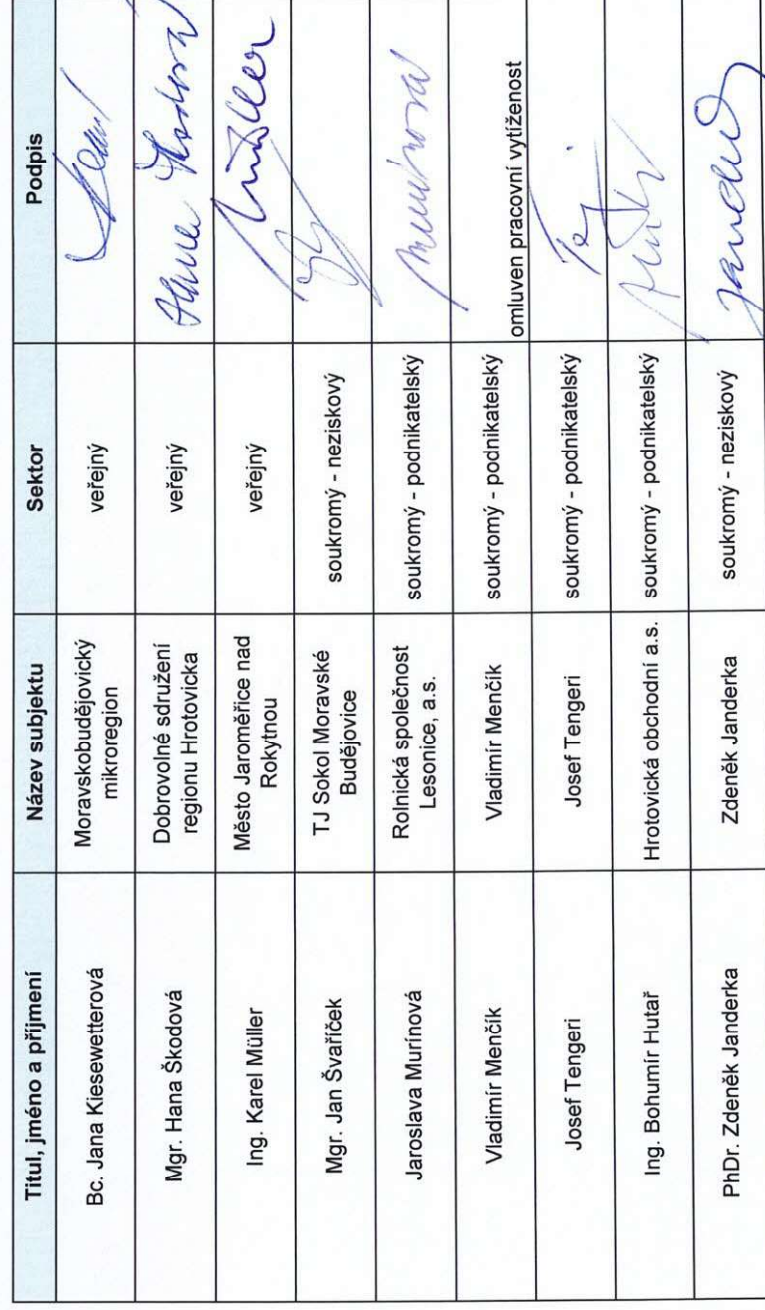 Titul, jméno a příjmení Název subjektu Sektor Podpis
Bc. Jana Kiesewetterová Moravskobudějovický mikroregion veřejný
Mgr. Hana Škodová Dobrovolné sdružení regionu Hrotovicka veřejný Hana Škodová
Ing. Karel Müller Město Jaroměřice nad Rokytnou veřejný Müller
Mgr. Jan Švaříček TJ Sokol Moravské Budějovice soukromý - neziskový
Jaroslava Murínová Rolnická společnost Lesonice, a.s. soukromý - podnikatelský Murínová
Vladimír Menčík Vladimír Menčík soukromý - podnikatelský omluven pracovní vytíženost
Josef Tengeri Josef Tengeri soukromý - podnikatelský
Ing. Bohumír Hutař Hrotovická obchodní a.s. soukromý - podnikatelský
PhDr. Zdeněk Janderka Zdeněk Janderka soukromý - neziskový